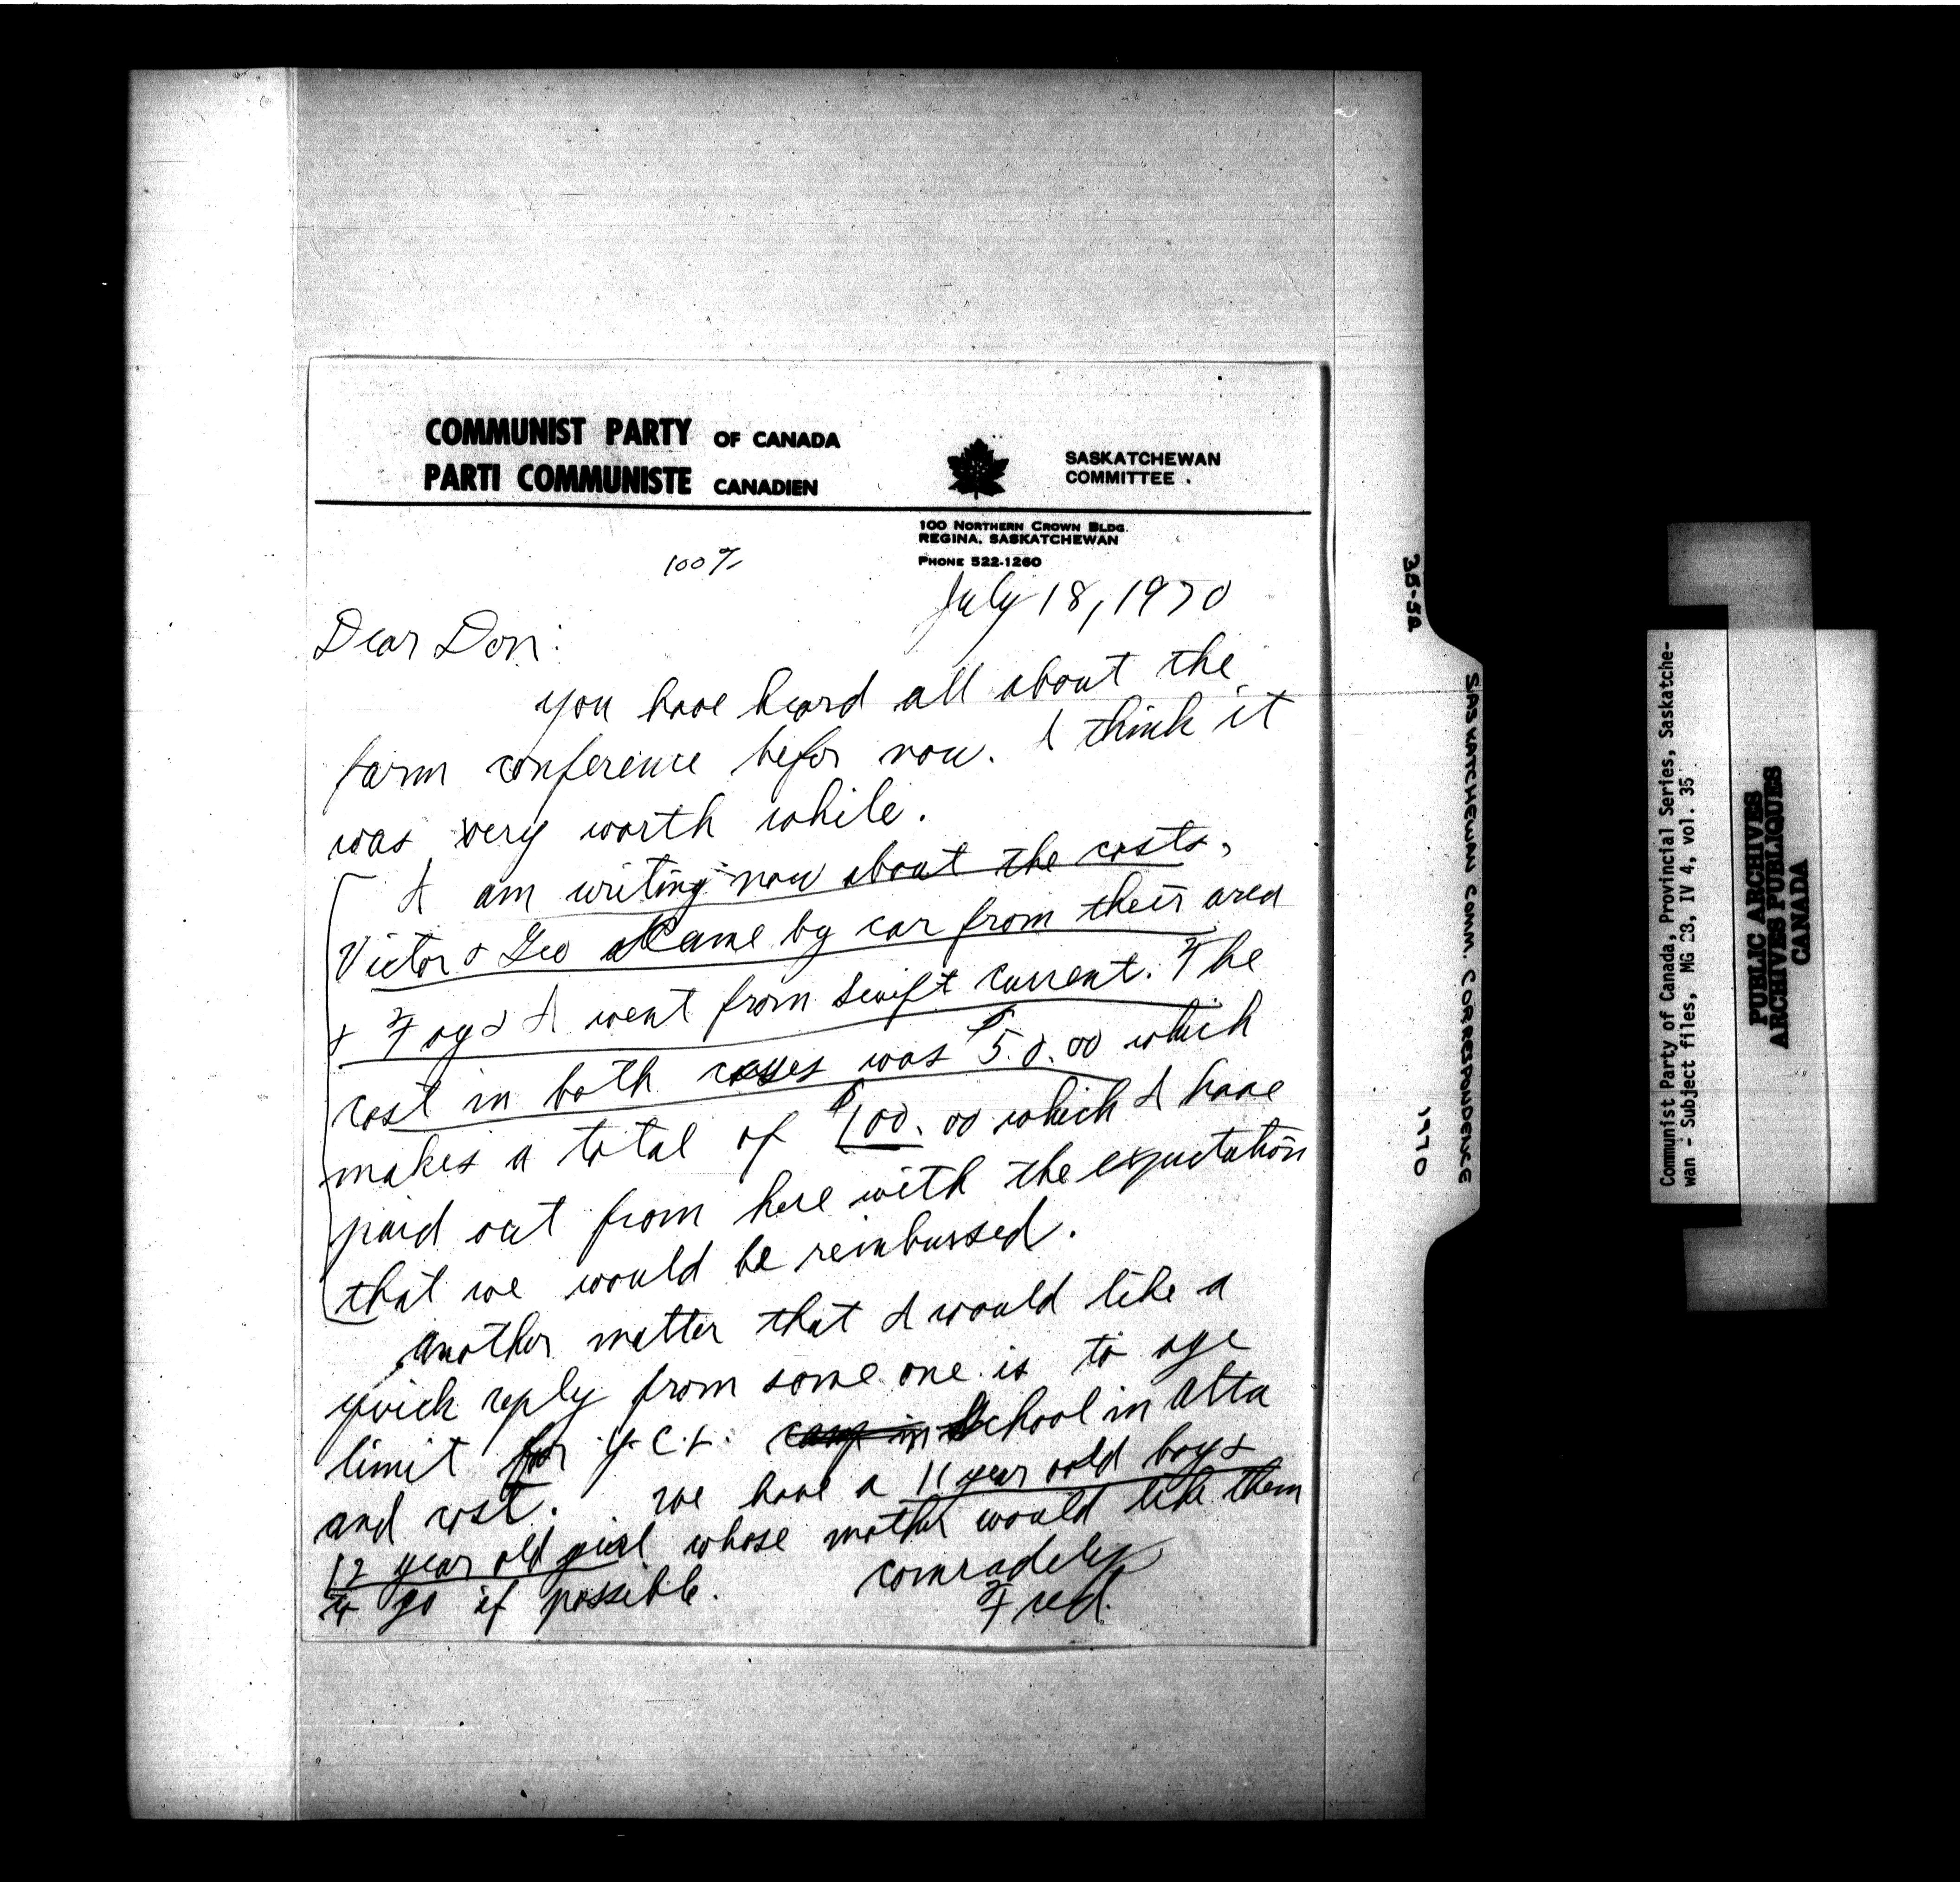 COMMUNIST PARTY OF CANADA
PARTI COMMUNISTE CANADIEN
SASKATCHEWAN
COMMITTEE .
100 NORTHERN CROWN BLDG.
REGINA, SASKATCHEWAN
PHONE 522-1260
100%
July 18, 1970
Dear Don:
you have heard all about the
farm conference befor now. I think it
was very worth while.
I am writing now about the costs,
Victor & Geo came by car from their area
& I went from Swift Current. The
cost in both cases was $50.00 which
makes a total of $100.00 which I have
paid out from here with the expectation
that we would be reimbursed.
another matter that I would like a
quick reply from some one is to age
limit for Y.C.L. camp in School in Alta
and cost. we have a 11 year old boy &
12 year old girl whose mother would like them
to go if possible.
comradely
Fred.
35-52
SASKATCHEWAN COMM. CORRESPONDENCE
1970
Communist Party of Canada, Provincial Series, Saskatche-
wan - Subject files, MG 28, IV 4, vol. 35
PUBLIC ARCHIVES
ARCHIVES PUBLIQUES
CANADA